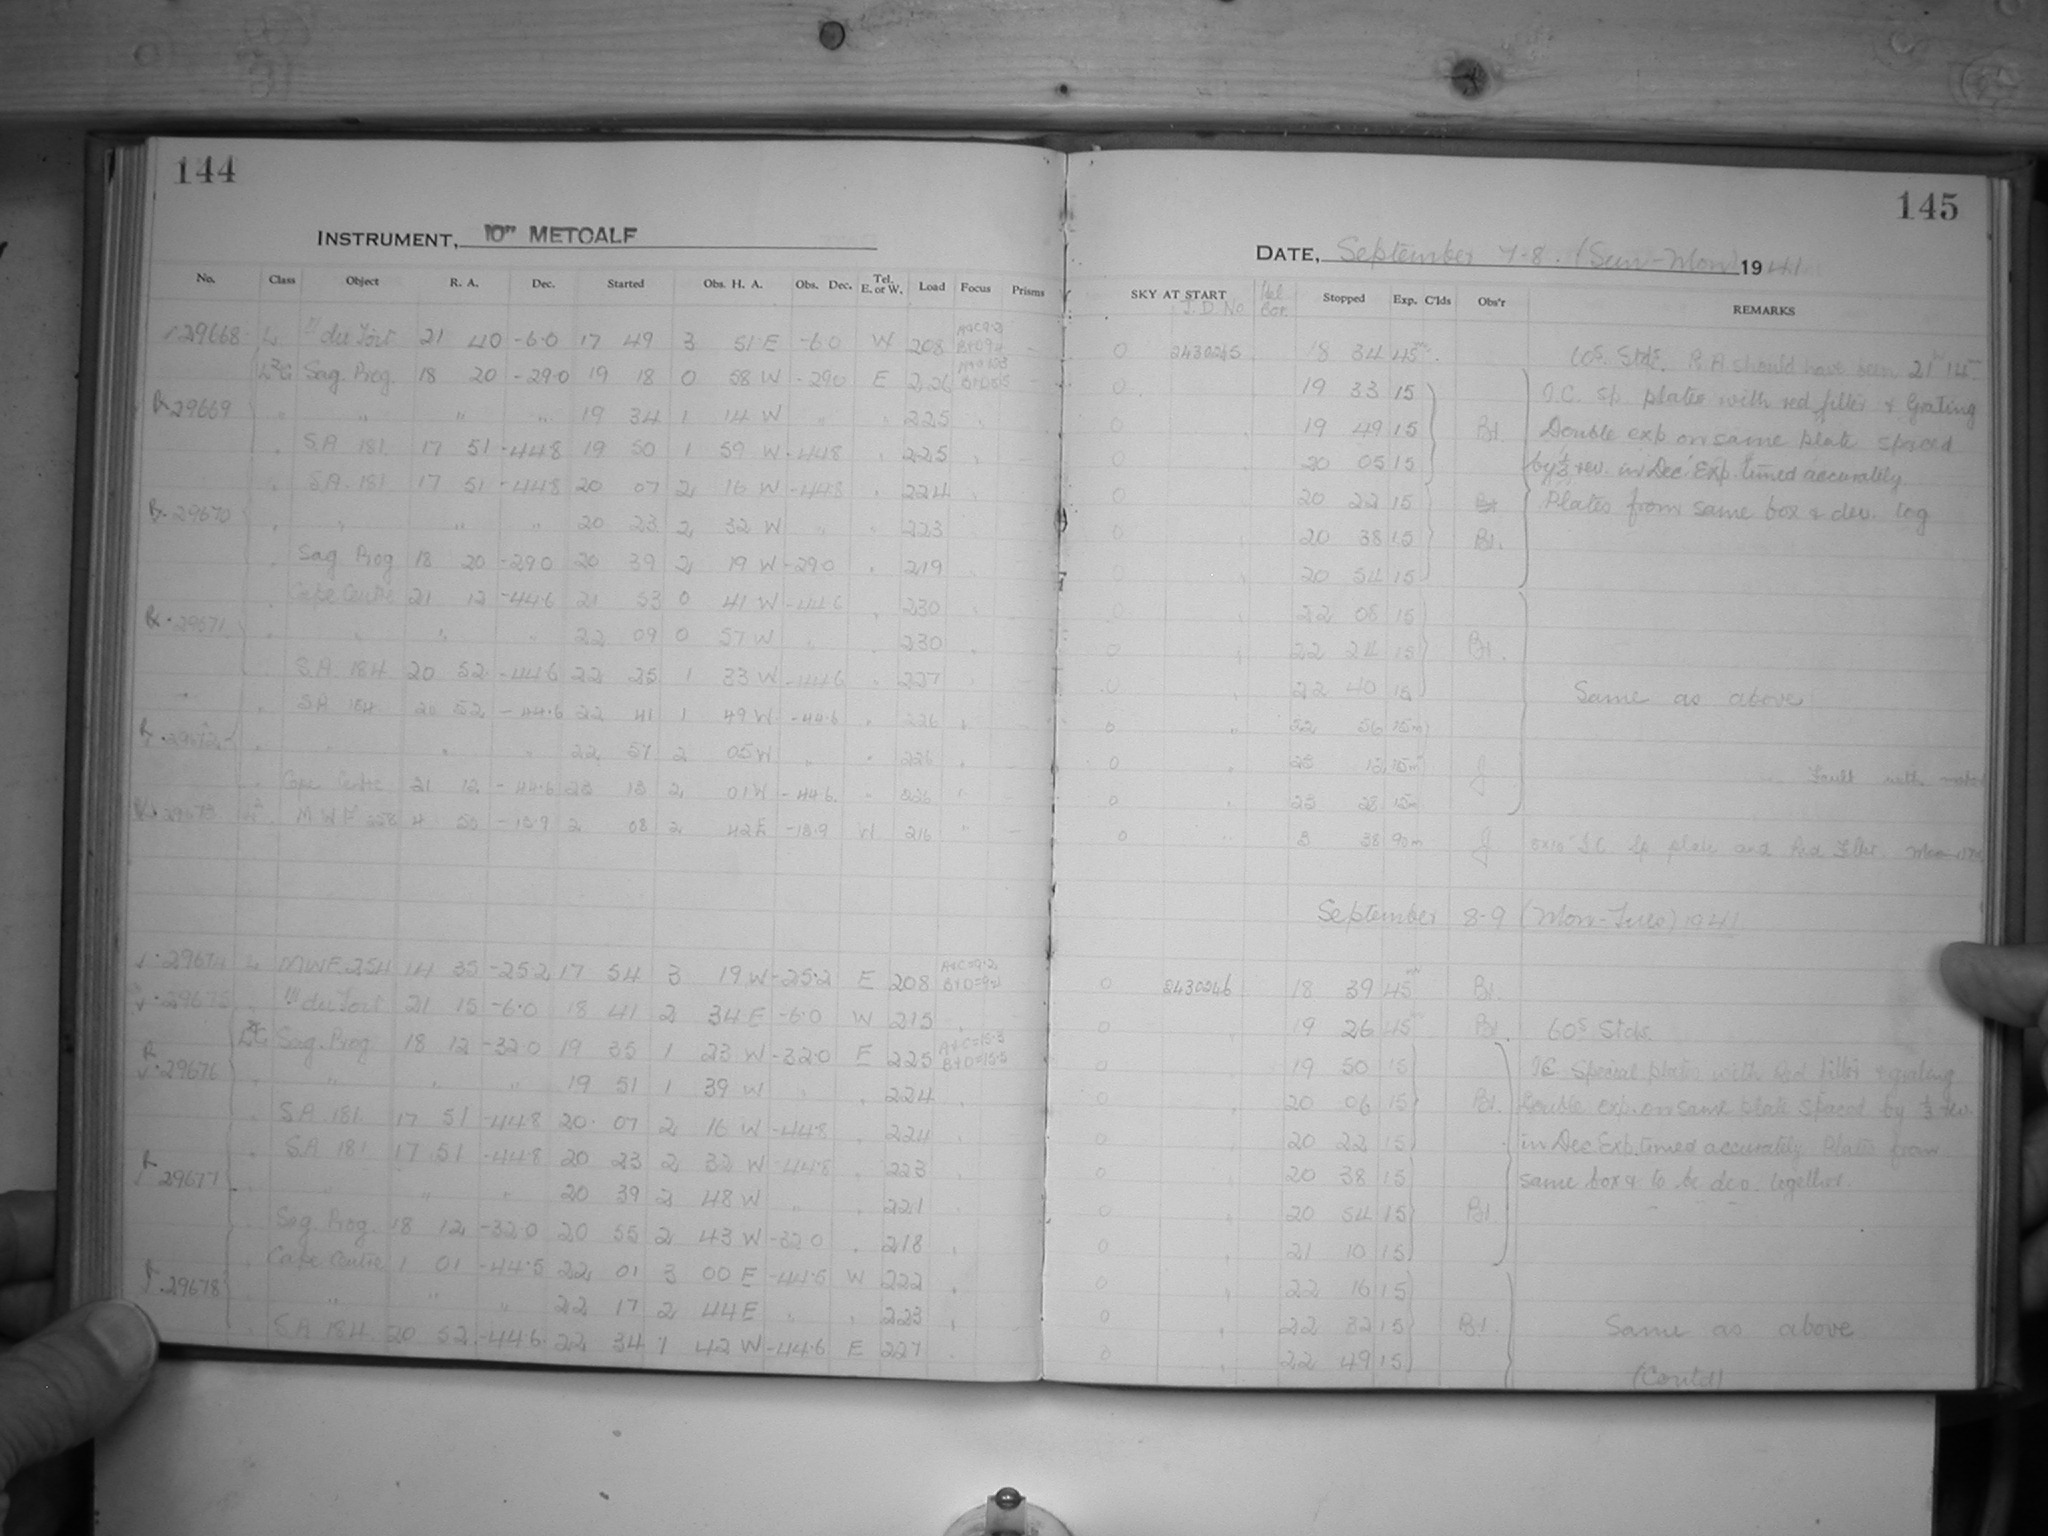 144
INSTRUMENT, 10" METCALF
No. Class Object R. A. Dec. Started Obs. H. A. Obs. Dec. Tel. E. or W. Load Focus Prisms
29668 L du Toit 21 40 -6.0 17 49 3 51 E -6.0 W 208
Sag. Prog. 18 20 -29.0 19 18 0 58 W -29.0 E 226
29669 " " " 19 34 1 14 W " " 225
S.A. 181 17 51 -44.8 19 50 1 59 W -44.8 " 225
S.A. 181 17 51 -44.8 20 07 2 16 W -44.8 " 224
29670 " " " 20 23 2 32 W " " 223
Sag Prog 18 20 -29.0 20 39 2 19 W -29.0 " 219
Cape Centre 21 12 -44.6 21 53 0 41 W -44.6 " 230
29671 " " " 22 09 0 57 W " " 230
S.A. 184 20 52 -44.6 22 25 1 33 W -44.6 " 227
SA 184 20 52 -44.6 22 41 1 49 W -44.6 " 226
29672 " " " 22 57 2 05 W " " 226
Cape Centre 21 12 -44.6 23 13 2 01 W -44.6 " 226
29673 MWF 258 4 50 -15.9 2 08 2 42 E -15.9 W 216
29674 L MWF 254 14 35 -25.2 17 54 3 19 W -25.2 E 208 A+C=9.2 B+D=9.4
29675 " du Toit 21 15 -6.0 18 41 2 34 E -6.0 W 215
Sag. Prog 18 12 -32.0 19 35 1 23 W -32.0 E 225 A+C=15.3 B+D=15.5
29676 " " " 19 51 1 39 W " " 224
S.A. 181 17 51 -44.8 20 07 2 16 W -44.8 " 224
S.A. 181 17 51 -44.8 20 23 2 32 W -44.8 " 223
29677 " " " 20 39 2 48 W " " 221
Sag. Prog. 18 12 -32.0 20 55 2 43 W -32.0 " 218
Cape Centre 1 01 -44.5 22 01 3 00 E -44.5 W 222
29678 " " " 22 17 2 44 E " " 223
S.A. 184 20 52 -44.6 22 34 1 42 W -44.6 E 227
145
DATE, September 7-8. (Sun-Mon) 1941
SKY AT START J.D. No Stopped Exp. C'lds Obs'r REMARKS
0 2430245 18 34 45m 60s Stds. R.A should have been 21h 15m
0 19 33 15 I.C. sp. plates with red filter & Grating
0 19 49 15 Bl. Double exp on same plate spaced
0 20 05 15 by ½ rev. in Dec. Exp. timed accurately
0 20 22 15 Plates from same box & dev. log
0 20 38 15 Bl.
0 20 54 15
0 22 08 15
0 22 24 15 Bl.
0 22 40 15 Same as above
0 22 56 15m
0 23 12 15m J Fault with
0 23 28 15m
0 3 38 90m J 8x10 I.C. Sp plate and Red Filter.
September 8-9 (Mon-Tues) 1941
0 2430246 18 39 45m Bl.
0 19 26 45m Bl. 60s Stds.
0 19 50 15 I.C. Special plates with Red filter & grating
0 20 06 15 Bl. Double exp. on same plate spaced by ½ rev.
0 20 22 15 in Dec. Exp. timed accurately. Plates from
0 20 38 15 same box & to be dev. together.
0 20 54 15 Bl
0 21 10 15
0 22 16 15
0 22 32 15 Bl. Same as above
0 22 49 15
(Contd)